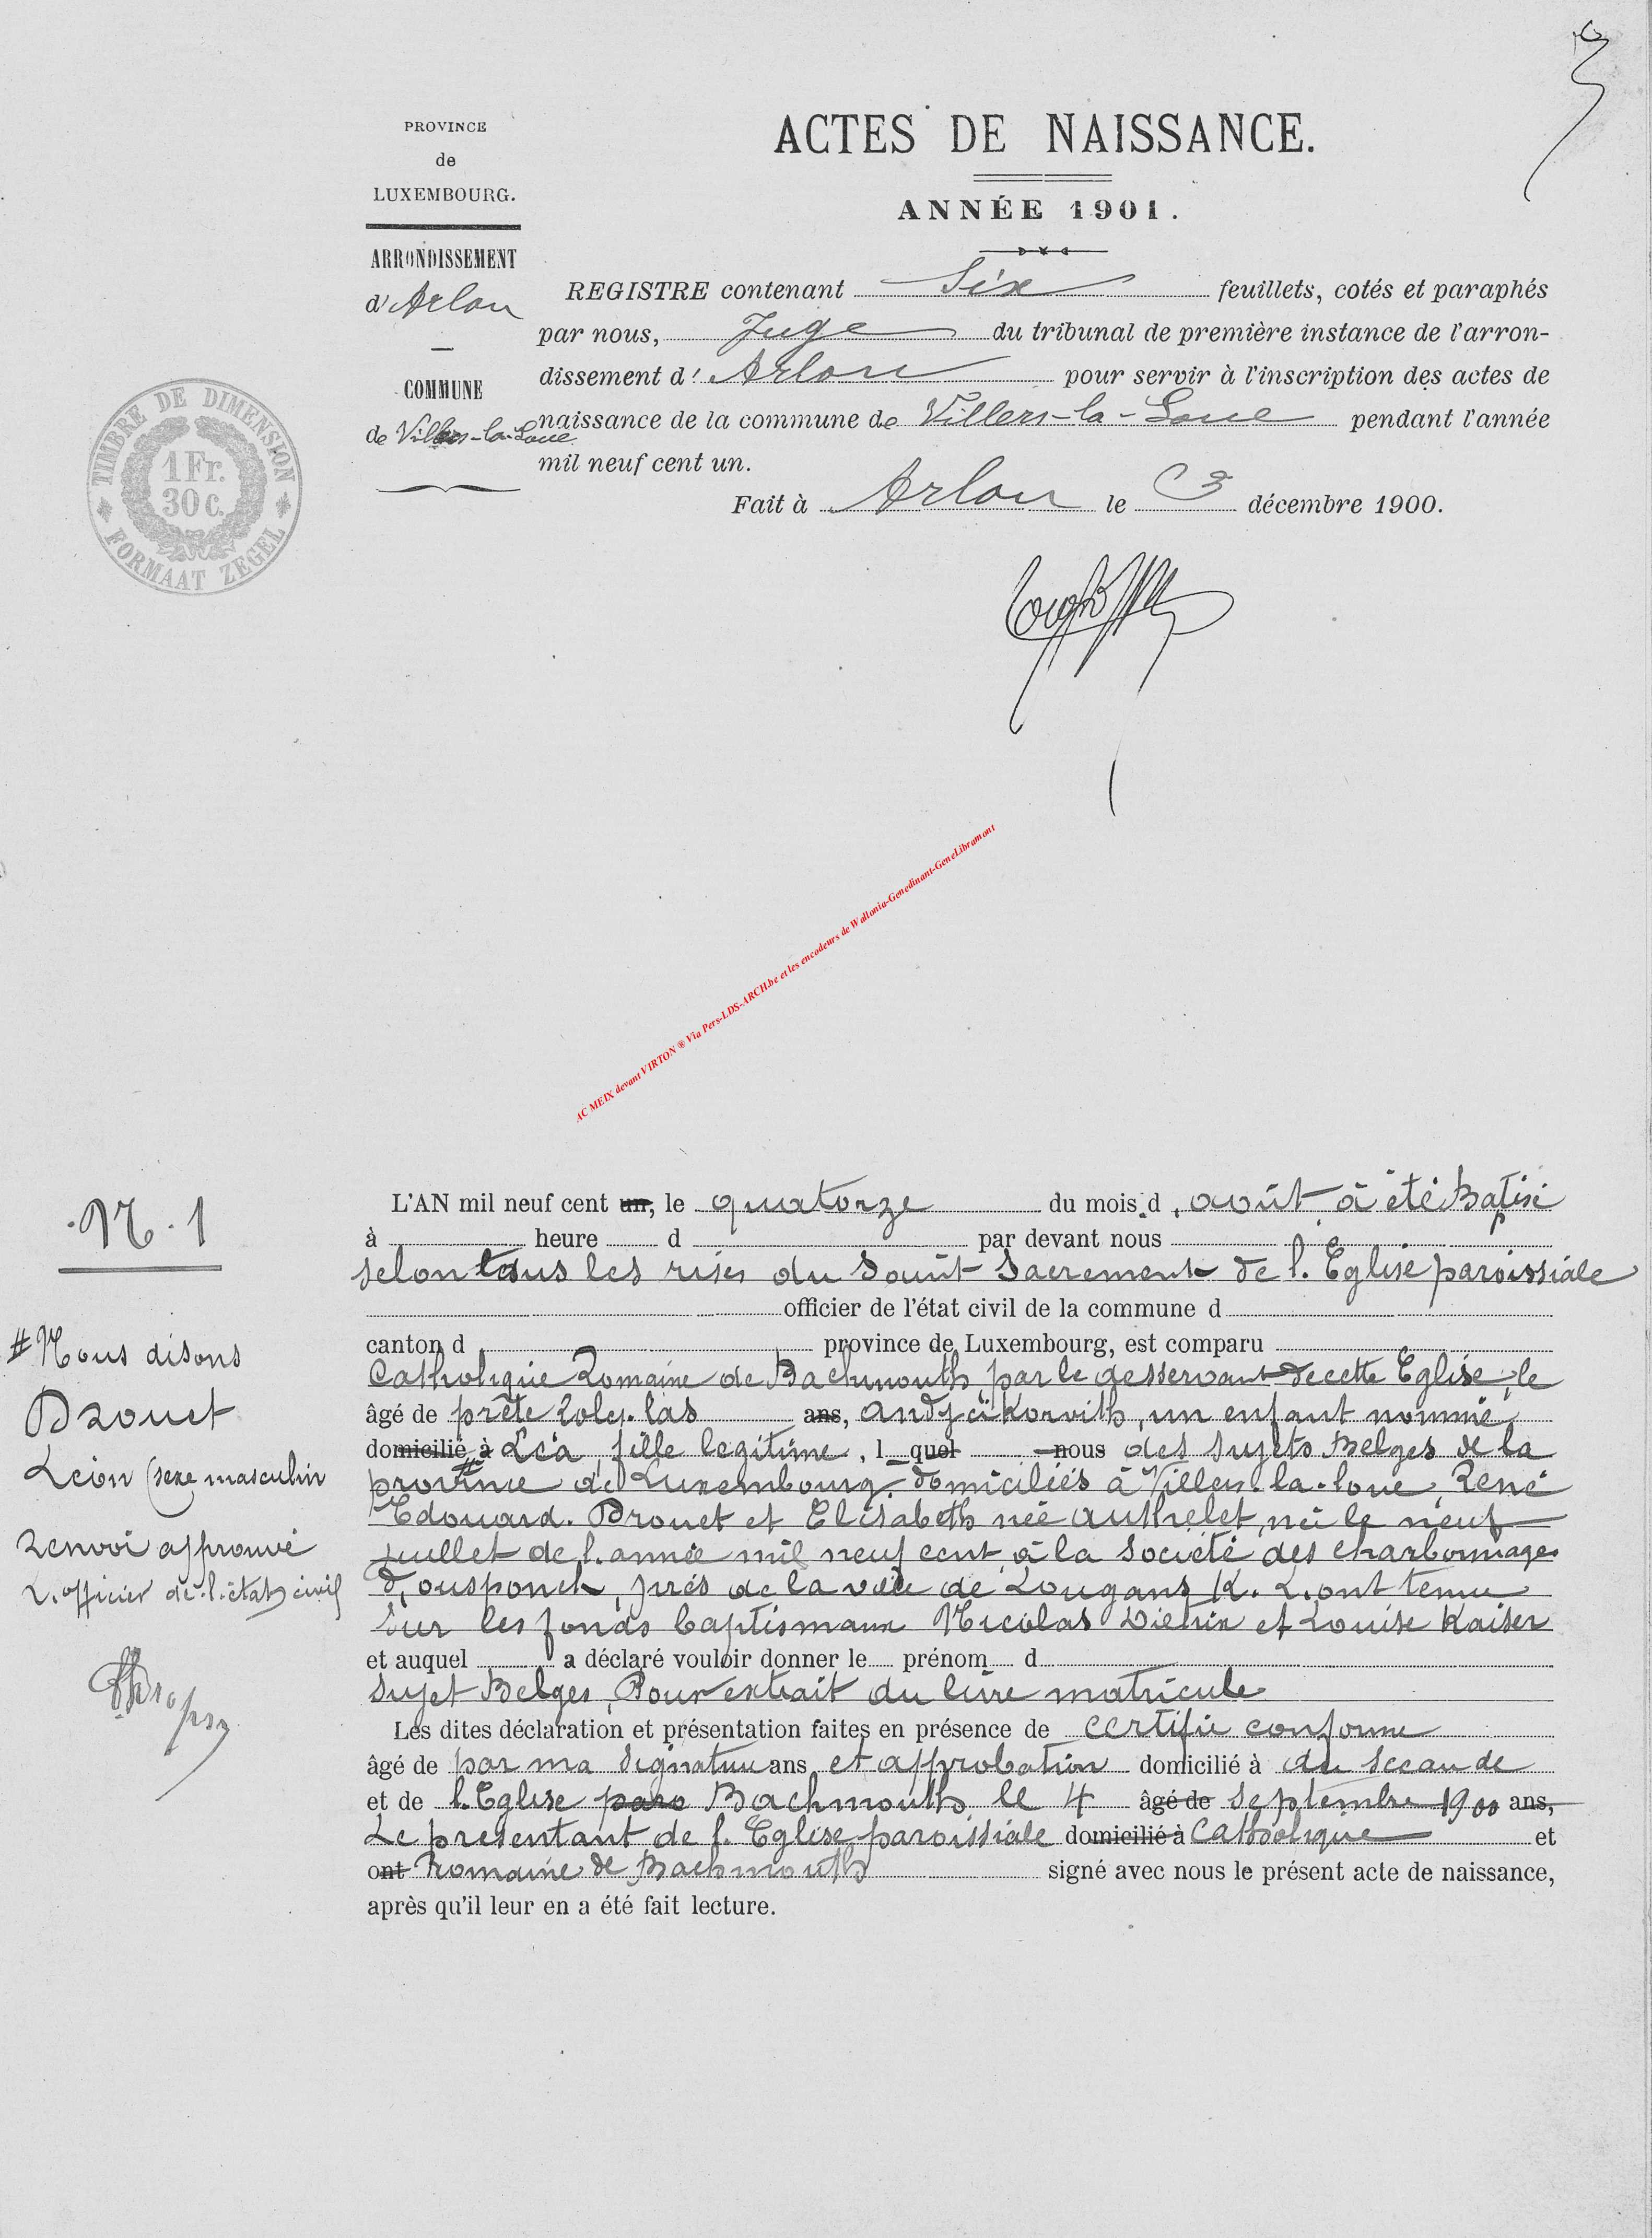 PROVINCE
de
LUXEMBOURG.
ARRONDISSEMENT
d'Arlon
COMMUNE
de Villers-la-Loue
TIMBRE DE DIMENSION
1 Fr.
30 c.
FORMAAT ZEGEL
ACTES DE NAISSANCE.
ANNÉE 1901.
REGISTRE contenant Six feuillets, cotés et paraphés
par nous, Juge du tribunal de première instance de l'arron-
dissement d' Arlon pour servir à l'inscription des actes de
naissance de la commune de Villers-la-Loue pendant l'année
mil neuf cent un.
Fait à Arlon le 3 décembre 1900.
AC MEIX devant VIRTON ® Via Pers-LDS-ARCH.be et les encodeurs de Wallonia-Genedinant-GeneLibramont
N. 1
# Nous disons
Drouet
Léon (sexe masculin
Renvoi approuvé
L'officier de l'état civil
L'AN mil neuf cent un, le quatorze du mois d août à été Batisé
à heure d par devant nous
selon tous les rises du Saint Sacrement de l. Eglise paroissiale
officier de l'état civil de la commune d
canton d province de Luxembourg, est comparu
Catholique Romaine de Bachmouth par le desservant de cette Eglise, le
âgé de prête Roly. las ans, andjeikorvith, un enfant nommé
domicilié à Léa, fille legitime, l quel nous des sujets Belges de la
province de Luxembourg domiciliés à Villers-la-loue, René
Edouard. Drouet et Elisabeth née Authelet, née le neuf
juillet de l'année mil neuf cent, à la Societé des charbonnages
d'ousponck, près de la ville de Lougans K. L. ont tenu
sur les fonds baptismaux Nicolas Diehix et Louise Kaiser
et auquel a déclaré vouloir donner le prénom d
sujet Belges, Pour extrait du livre matricule
Les dites déclaration et présentation faites en présence de certifié conforme
âgé de par ma signature ans, et approbation domicilié à du sceau de
et de l'Eglise paro Bachmouth le 4 âgé de septembre 1900 ans,
Le présentant de l. Eglise paroissiale domicilié à Catholique et
ont Romaine de Bachmouth signé avec nous le présent acte de naissance,
après qu'il leur en a été fait lecture.